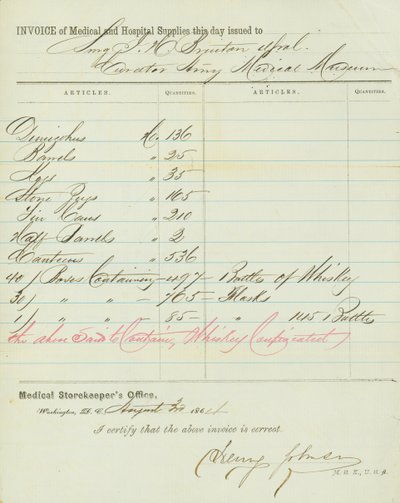 INVOICE of Medical and Hospital Supplies this day issued to
Surg J. H. Brinton
Curator Army Medical Museum
ARTICLES. QUANTITIES. ARTICLES. QUANTITIES.
Demijohns No. 136
Barrels " 25
Kegs " 35
Stone Jugs " 165
Tin Cans " 210
Half Barrels " 2
Canteens " 336
40/ Boxes Containing — 497 — Bottles of Whiskey
30/ " " — 765 — Flasks
1/ " " — 85 — " 1451 Bottles
The above Said to Contain, Whiskey Confiscated
Medical Storekeeper's Office,
Washington, D. C. August 1864
I certify that the above invoice is correct.
Henry Johnson
M. S. K., U. S. A.